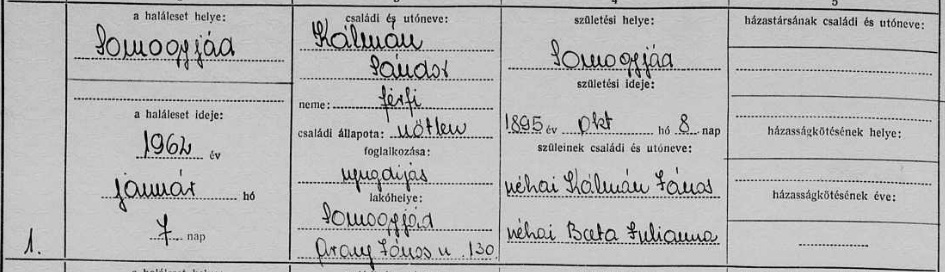 5
a haláleset helye:
Somogyjád
a haláleset ideje:
1962 év
január hó
7 nap
1.
családi és utóneve:
Kálmán
Sándor
neme: férfi
családi állapota: nőtlen
foglalkozása:
nyugdíjas
lakóhelye:
Somogyjád
Arany János u. 130
születési helye:
Somogyjád
születési ideje:
1895 év okt hó 8 nap
szüleinek családi és utóneve:
néhai Kálmán János
néhai Beta Julianna
házastársának családi és utóneve:
házasságkötésének helye:
házasságkötésének éve: